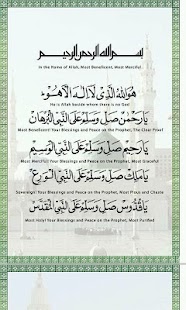 بسم الله الرحمن الرحيم
In the Name of Allah, Most Beneficent, Most Merciful
هُوَ اللهُ الَّذِي لَا إِلَهَ إِلَّا هُوَ
He is Allah beside whom there is no God
يَا رَحْمٰنُ صَلِّ وَسَلِّمْ عَلَى النَّبِيِّ الْبُرْهَانِ
Most Beneficent! Your Blessings and Peace on the Prophet, The Clear Proof
يَا رَحِيمُ صَلِّ وَسَلِّمْ عَلَى النَّبِيِّ الْوَسِيمِ
Most Merciful! Your Blessings and Peace on the Prophet, Most Graceful
صَلِّ وَسَلِّمْ عَلَى النَّبِيِّ الْوَرِعِ
Sovereign! Your Blessings and Peace on the Prophet, Most Pious and Chaste
يَا قُدُّوسُ صَلِّ وَسَلِّمْ عَلَى النَّبِيِّ الْمُقَدَّسِ
Most Holy! Your Blessings and Peace on the Prophet, Most Purified